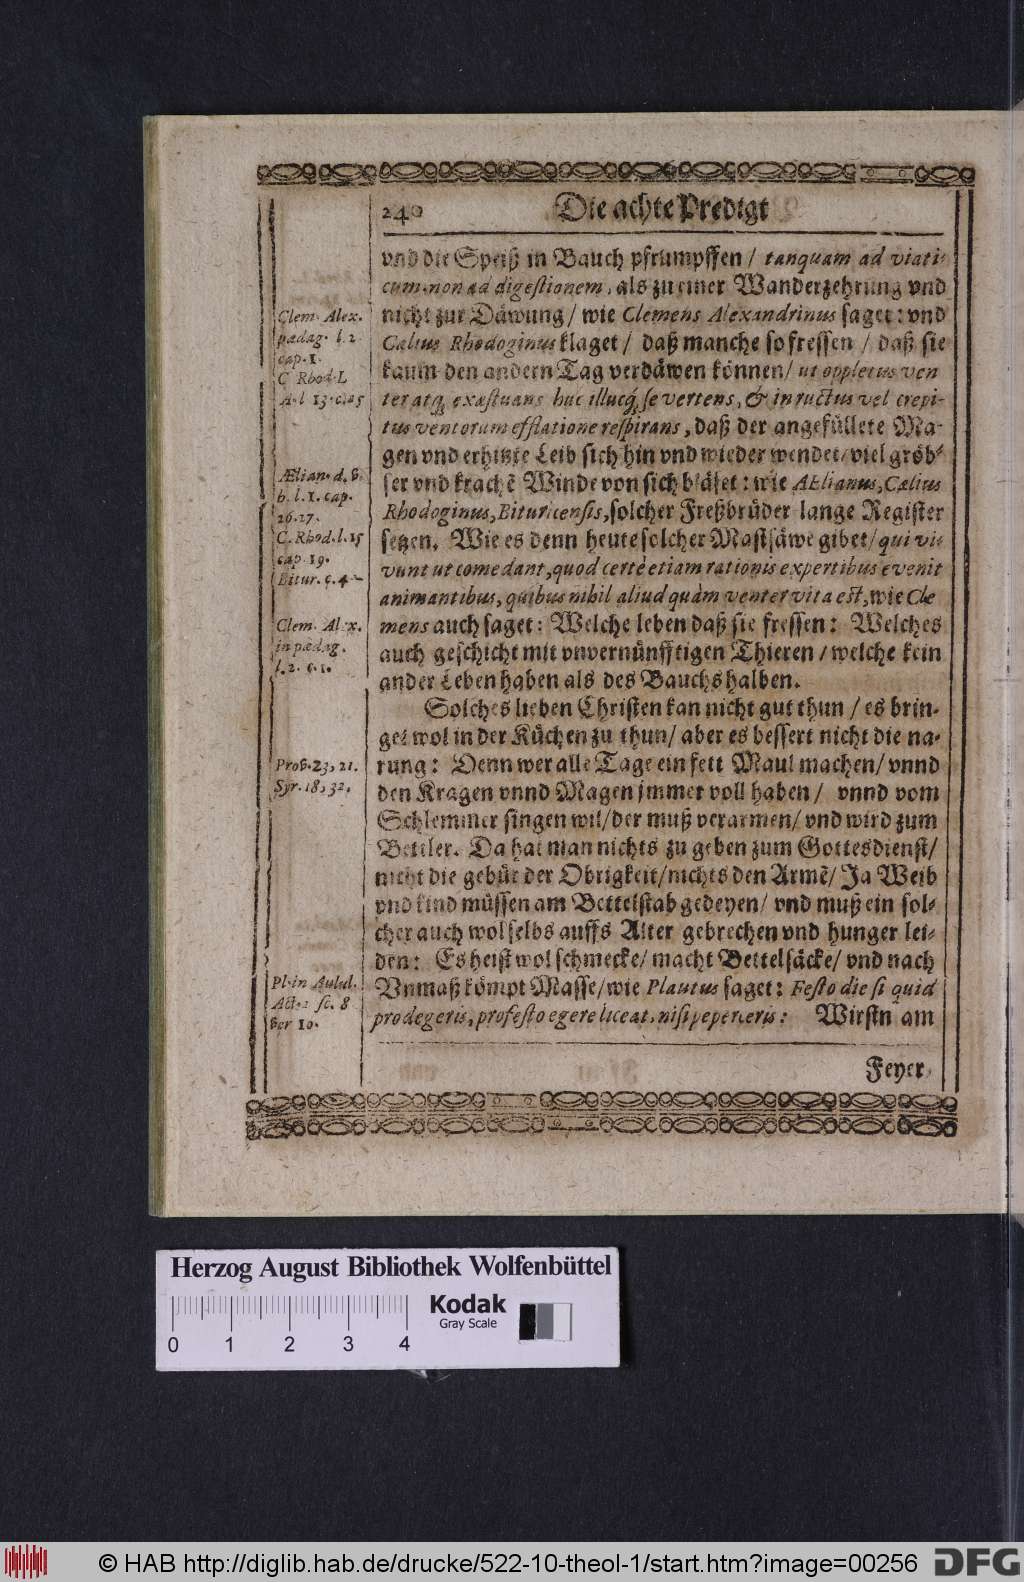 240 Die achte Predigt
vnd die Speiß in Bauch pfrumpffen / tanquam ad viati-
cum, non ad digestionem, als zu einer Wanderzehrung vnd
nicht zur Däwung / wie Clemens Alexandrinus saget: vnd
Cælius Rhodoginus klaget / daß manche so fressen / daß sie
kaum den andern Tag verdäwen können / ut oppletus ven
ter atq; exæstuans huc illucq; se vertens, & in ructus vel crepi-
tus ventorum efflatione respirans, daß der angefüllete Ma-
gen vnd erhitzte Leib sich hin vnd wieder wendet / viel gröb-
ser vnd krachẽ Winde von sich bläset: wie AElianus, Cælius
Rhodoginus, Bituricensis, solcher Freßbrüder lange Register
setzen. Wie es denn heute solcher Mastsäwe gibet / qui vi-
vunt ut comedant, quod certè etiam rationis expertibus evenit
animantibus, quibus nihil aliud quàm venter vita est, wie Cle
mens auch saget: Welche leben daß sie fressen: Welches
auch geschicht mit vnvernünfftigen Thieren / welche kein
ander Leben haben als des Bauchs halben.
Solches lieben Christen kan nicht gut thun / es brin-
get wol in der Küchen zu thun / aber es bessert nicht die na-
rung: Denn wer alle Tage ein fett Maul machen / vnnd
den Kragen vnnd Magen jmmer voll haben / vnnd vom
Schlemmer singen wil / der muß verarmen / vnd wird zum
Bettler. Da hat man nichts zu geben zum Gottesdienst /
nicht die gebür der Obrigkeit / nichts den Armẽ / Ja Weib
vnd kind müssen am Bettelstab gedeyen / vnd muß ein sol-
cher auch wol selbs auffs Alter gebrechen vnd hunger lei-
den: Es heist wol schmecke / macht Bettelsäcke / vnd nach
Vnmaß kömpt Masse / wie Plautus saget: Festo die si quid
prodegeris, profesto egere liceat, nisi peperceris: Wirstn am
Feyer,
Clem. Alex.
pædag. l. 2.
cap. 1.
C Rhod. L
A. l 13. c. 25
Ælian. d. v.
h. l. 1. cap.
26. 27.
C. Rhod. l. 15
cap. 19.
Bitur. c. 4-
Clem. Alex.
in pædag.
l. 2. c. 1.
Prov. 23, 21.
Syr. 18, 32.
Pl. in Aulul.
Act. 2 sc. 8
ver 10.
Herzog August Bibliothek Wolfenbüttel
Kodak
Gray Scale
0 1 2 3 4
© HAB http://diglib.hab.de/drucke/522-10-theol-1/start.htm?image=00256
DFG